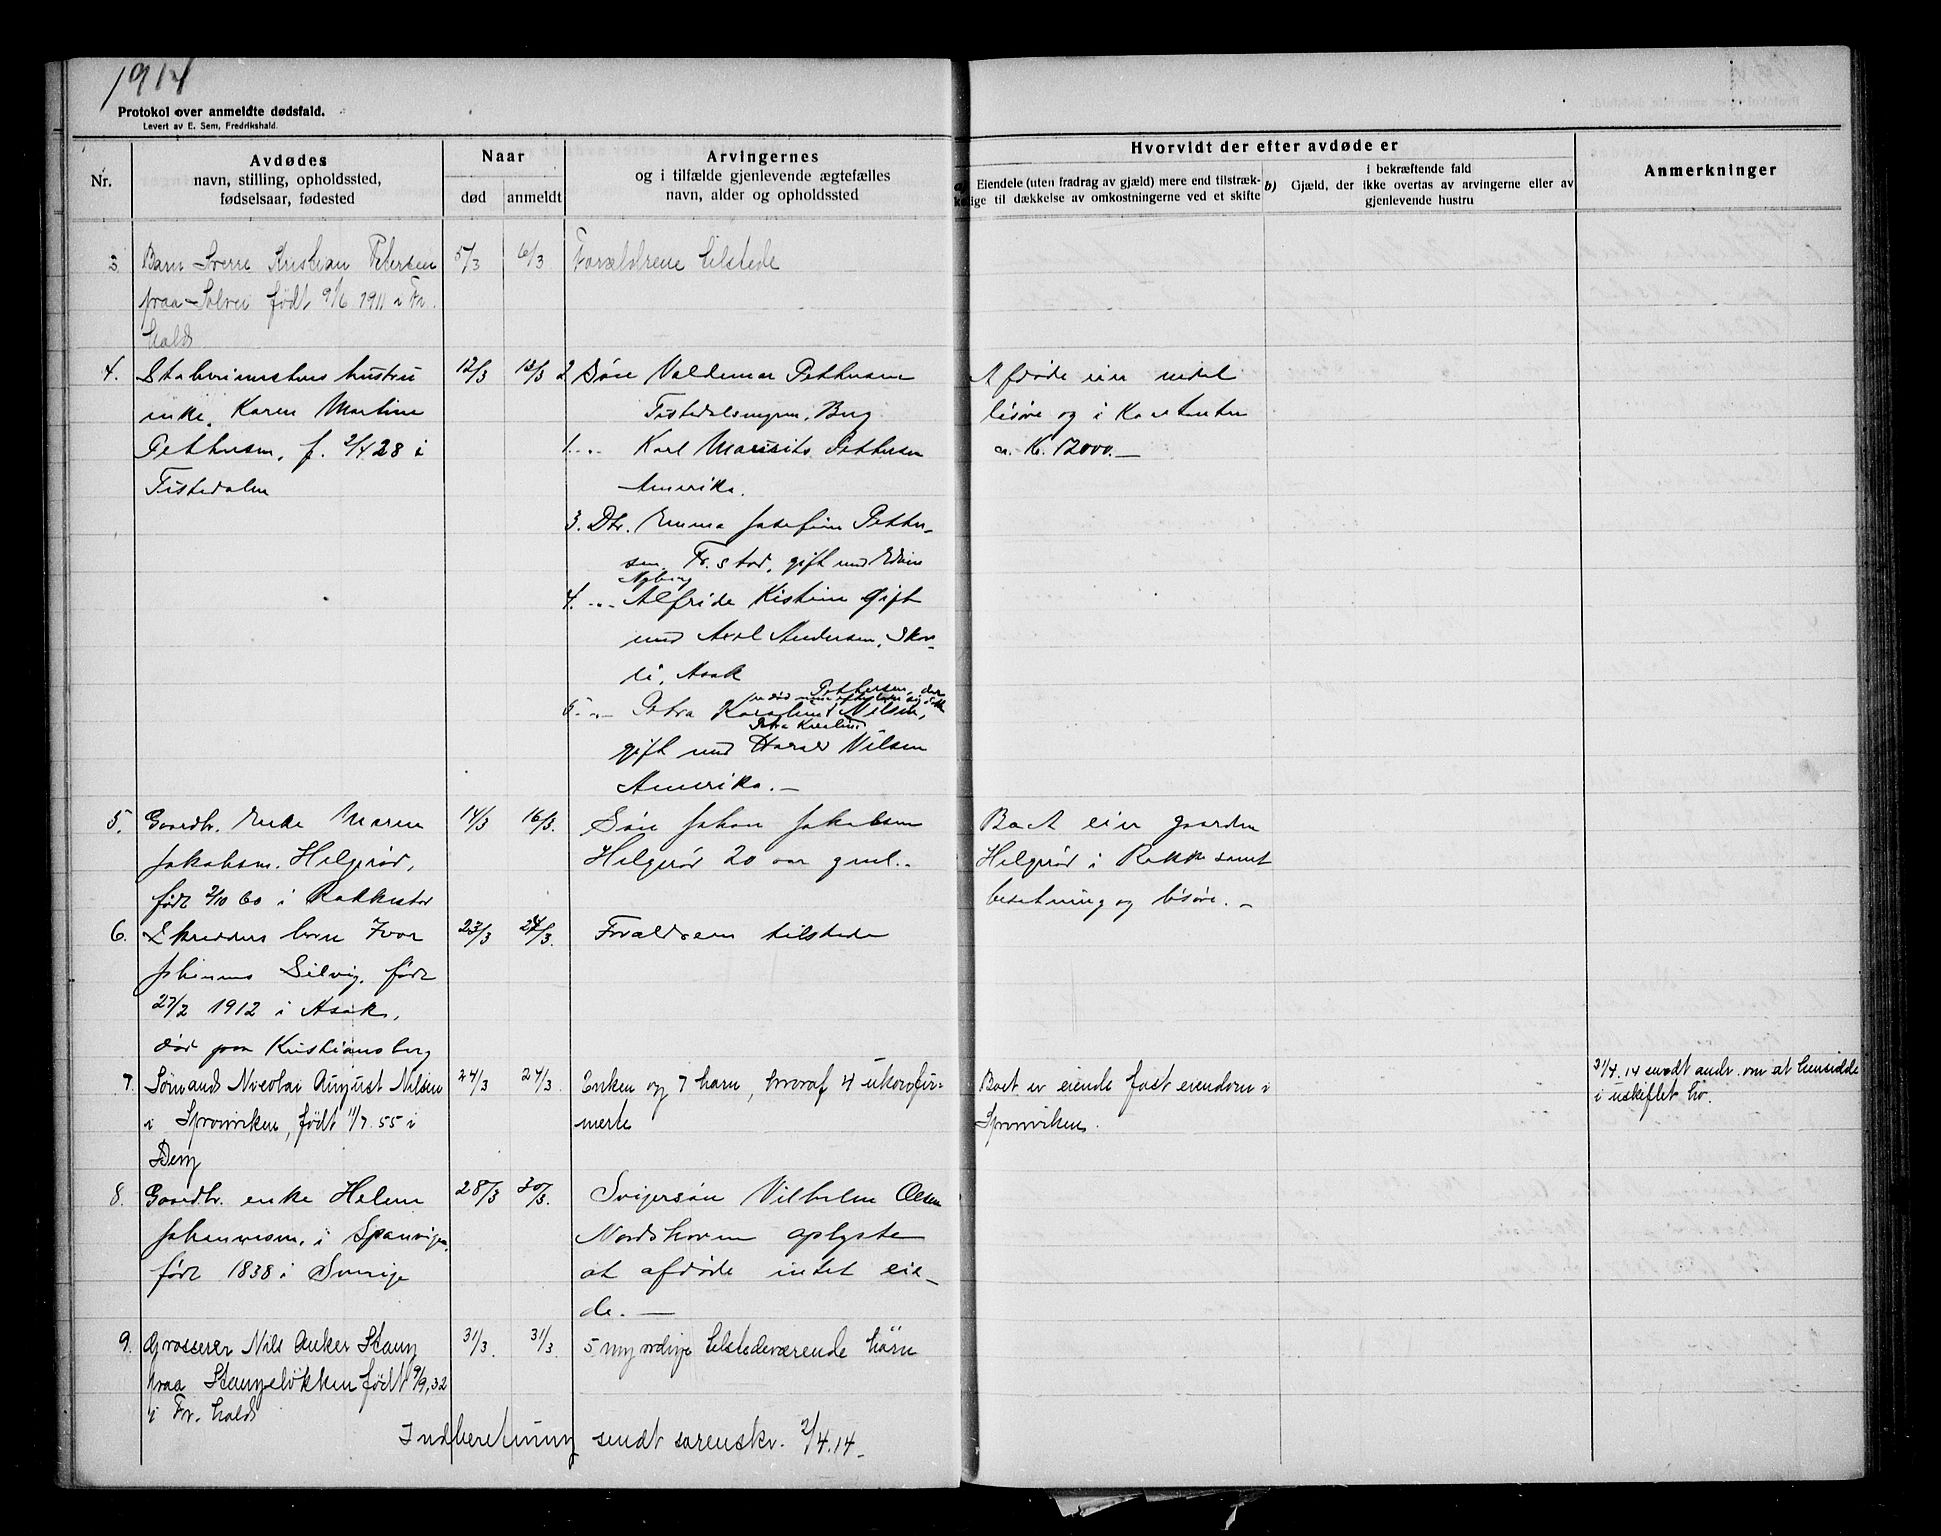 1914
Protokol over anmeldte dødsfald.
Levert av E. Sem, Fredrikshald.
Nr.
Avdødes
navn, stilling, opholdssted,
fødselsaar, fødested
Naar
død
anmeldt
Arvingernes
og i tilfælde gjenlevende ægtefælles
navn, alder og opholdssted
Hvorvidt der efter avdøde er
a) Eiendele (uten fradrag av gjæld) mere end tilstræk-
kelige til dækkelse av omkostningerne ved et skifte
i bekræftende fald
b) Gjæld, der ikke overtas av arvingerne eller av
gjenlevende hustru
Anmerkninger
3 Barn Sverre Kristian Petersen 5/3 6/3 Forældrene tilstede
paa Solvei født 9/6 1911 i Fr.
hald
4. hustru 12/3 13/3 2 Søn Valdemar Pettersen Afdøde eier endel
enke, Karen Martine Tistedalsengen, Berg løsøre og i Kontanter
Pettersen, f. 2/4 28 i 1. „ Karl Mauritz Pettersen ca. Kr. 12000.—
Tistedalen Amerika.
3. Dtr. Emma Josefine Petter-
sen. Fr.stad, gift med Edvin
Nyberg
4. „ Alfride Kistine gift
med Axel Andersen, Skov-
li, Asak
Pettersen, der
5. „ Petra Karoline Nilsen,
Petra Karoline
gift med Harald Nilsen
Amerika.—
5. Gaardbr. Enke Maren 14/3 16/3. Søn Johan Jakobsen Boet eier gaarden
Jakobsen. Helgerød, Helgerød 20 aar gml.. Helgerød i Rakke samt
født 2/10 60 i Rakkestad besetning og løsøre. –
6. Skredders barn Ivar 23/3 24/3. Forældrene tilstede
Johannes Solvig. født
27/2 1912 i Asak,
død paa Kristiansberg
7. Sømand Nicolai August Nilsen 24/3 24/3. Enken og 7 barn, hvoraf 4 ukonfir- Boet er eiende fast eiendom i 31/4.14 sendt andr. om at hensidde
i Sponviken, født 11/7.55 i merte Sponviken. i uskiftet bo.
Berg
8. Gaardbr. enke Helene 28/3 30/3. Svigersøn Vilhelm Olsen
Johannesen, i Sponvigen, Nordskoven oplyste
født 1838 i Sverige at afdøde intet eie-
de. —
9. Grosserer Nils Anker Stang 31/3. 31/3. 5 myndige tilstedeværende børn
paa Stangeløkken født 9/9, 32
i Fr. hald
Indberetning sendt sorenskr. 2/4.14